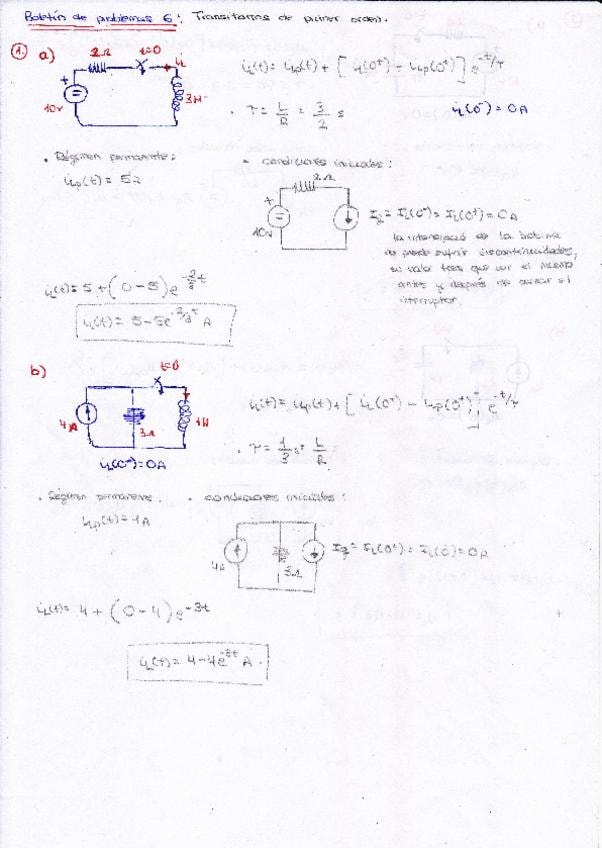 Boletín de problemas 6: Transitorios de primer orden.
1. a)
2Ω t=0 iL
10V 3H
iL(t) = iLp(t) + [iL(0⁺) - iLp(0⁺)] e^-t/τ
· τ = L/R = 3/2 s iL(0⁻) = 0A
· Régimen permanente:
iLp(t) = 5A
- Condiciones iniciales:
2Ω
10V
Ig = IL(0⁻) = IL(0⁺) = 0A
La intensidad de la bobina
no puede sufrir discontinuidades,
su valor tiene que ser el mismo
antes y después de accionar el
interruptor.
iL(t) = 5 + (0-5) e^-2/3t
iL(t) = 5-5e^-2/3t A
b)
t=0
4A 3Ω 1H
iL(0⁻)=0A
iL(t) = iLp(t) + [iL(0⁺) - iLp(0⁺)] e^-t/τ
· τ = 1/3 s = L/R
· Régimen permanente.
iLp(t) = 4A
· Condiciones iniciales:
4A 3Ω
Ig = IL(0⁺) = IL(0⁻) = 0A
iL(t) = 4 + (0-4) e^-3t
iL(t) = 4-4e^-3t A.